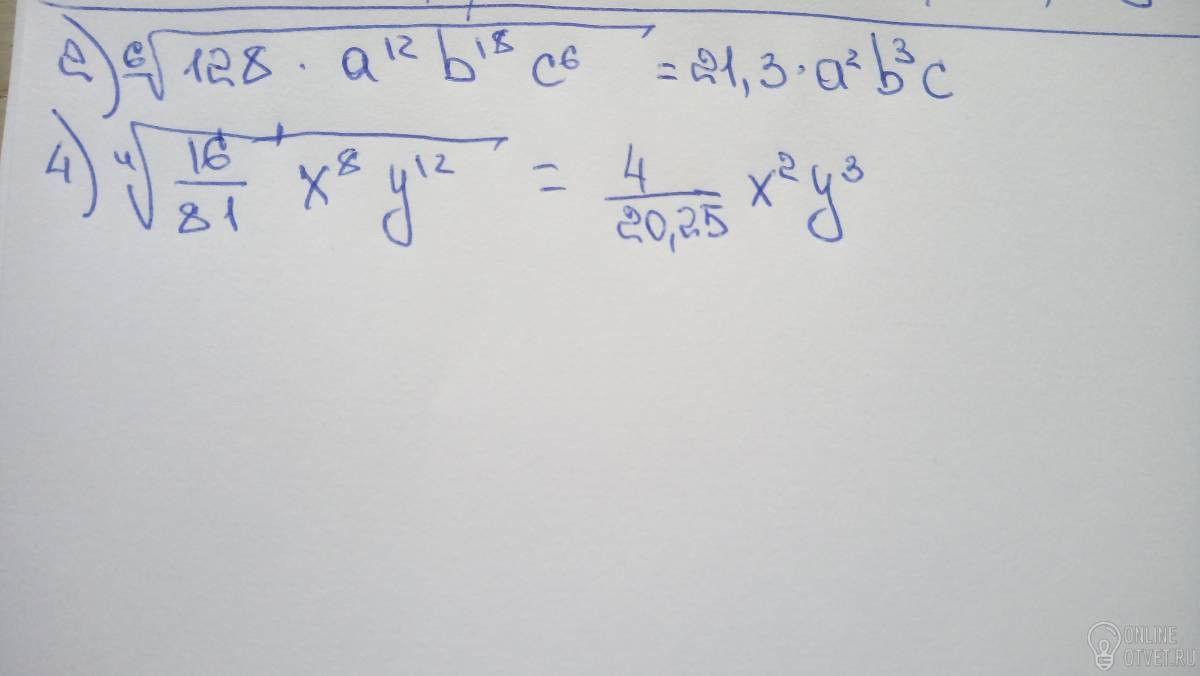 2) ⁶√128 · a¹² b¹⁸ c⁶ = 21,3 · a² b³ c
4) ⁴√16/81 x⁸ y¹² = 4/20,25 x² y³
ONLINE
OTVET.RU